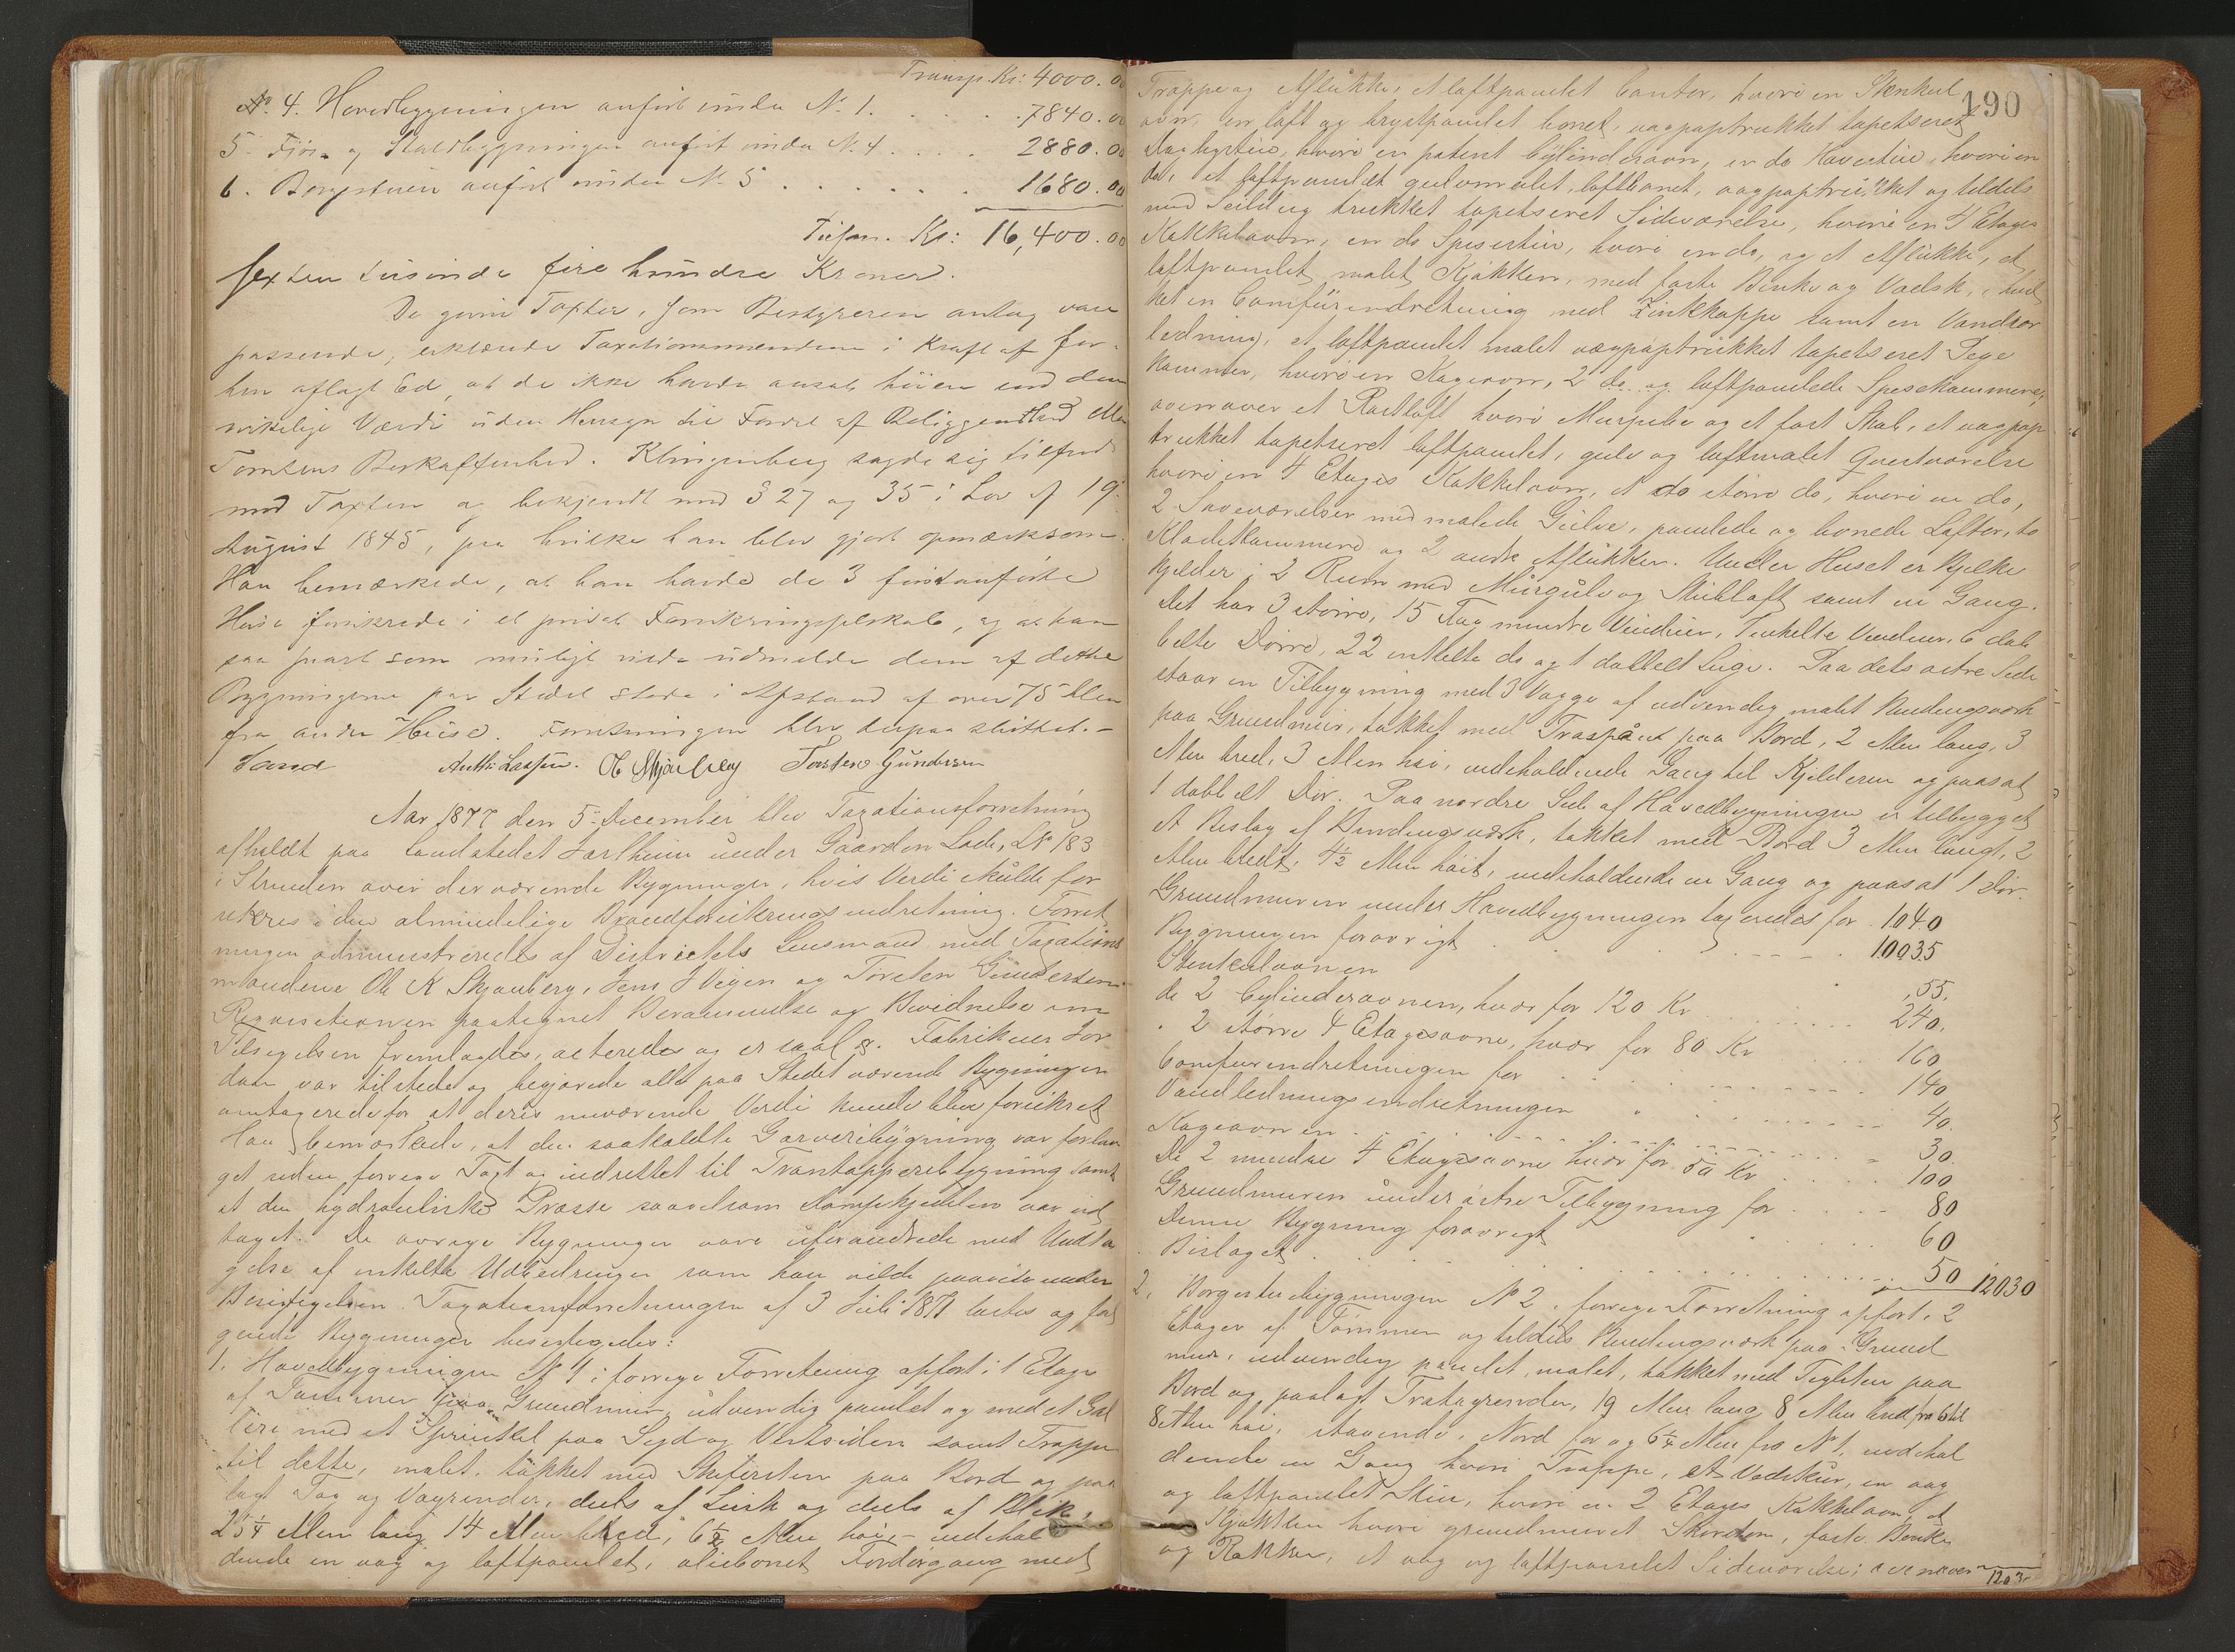 Transp. Kr: 4000.00
No. 4. Hovedbygningen anført under No 1. . . . . . 7840.00
5. Fjøs- og Staldbygningen anført under No. 4 . . . . 2880.00
6. Borgstuen anført under No 5 . . . . . . . 1680.00
Tilsam. Kr: 16,400.00
Sexten tusinde fire hundre Kroner.
De givne Taxter, som Bestyreren antog vare
passende, erklærede Taxationsmændene i Kraft af for-
hen aflagt Ed, at de ikke havde ansat høiere end den
virkelige Værdi uden Hensyn til Fordel af Beliggenhed eller
Tomtens Beskaffenhed. Klingenberg sagde sig tilfreds
med Taxten og bekjendt med § 27 og 35 i Lov af 19.
August 1845, paa hvilke han blev gjort opmærksom.
Han bemærkede, at han havde de 3 først anførte
Huse forsikrede i et privat Forsikringsselskab, og at han
saa snart som muligt vilde udmelde dem af dette
Bygningerne paa Stedet staa i Afstand af over 75 Alen
fra andre Huse. Forretningen blev derpaa sluttet. -
Sand Anth: Lassen. O K Skjanberg Torsten Gundersen
Aar 1877 den 5. December blev Taxationsforretning
afholdt paa Landstedet Jarlheim under Gaarden Lade, L No 183
i Strinden over derværende Bygninger, hvis Verdi skulde for
sikres i den almindelige Brandforsikringsindretning. Forret
ningen administreredes af Districtets Lensmand med Taxations
mændene Ole K Skjanberg, Jens J Veigen og Torsten Gundersen
Requisitionen paategnet Berammelse og Bevidnelse om
Tilsigelsen fremlagdes, acteredes og er saal. Fabrikeier Jor
dan var tilstede og begjærede alle paa Stedet værende Bygninger
omtaxerede for at deres nuværende Verdi kunde blive forsikret
Han bemærkede, at den saakaldte Garveribygning var forlæn
get siden forrige Taxt og indrettet til Trantapperibygning samt
at den hydrauliske Presse saavelsom Dampkjedelen var ud
taget. De øvrige Bygninger vare uforandrede med Undta
gelse af enkelte Udbedringer som han vilde paavise under
Besigtigelsen. Taxationsforretningen af 3 Juli 1871 læstes og føl
gende Bygninger besigtigedes:
1. Hovedbygningen No 1 i forrige Forretning opført i 1 Etage
af Tømmer paa Grundmur, udvendig panelet og med et Gal
leri med et Sprinkel paa Syd og Vestsiden samt Trappe
til dette, malet, tækket med Skifersten paa Bord og paa
lagt Tag og Vagrender, deels af Sink og deels af Blik,
25¼ Alen lang 14 Alen bred, 6½ Alen høi - indehol
dende en væg og loftpanelet, oliebonet Fordørgang med
190
Trappe og Aflukke, et loftpanelet Contor, hvori en Stenkul
ovn, en loft og brystpanelet bonet, vægpaptrukket tapetseret
Dagligstue, hvori en patent Cylinderovn, en do Havestue, hvori en
do, et loftpanelet gulvmalet, loftbonet, vægpaptrukket og tildels
med Seildug trukket tapetseret Sideværelse, hvori en 4 Etages
Kakkelovn, en do Spisestue, hvori en do, og et Aflukke, et
loftpanelet malet Kjøkken, med faste Bænke og Vadsk, i hvil
ket en Comfurindretning med Zinkkappe samt en Vandsør
ledning, et loftpanelet malet vægpaptrukket tapetseret Pige
kammer, hvori en Kageovn, 2 do og loftpanelede Spisekammere,
ovenover et Røstloft hvori Murpibe og et fast Skab, et vægpap
trukket tapetseret loftpanelet, gulv og loftmalet Gjesteværelse
hvori en 4 Etages Kakkelovn, et do større do, hvori en do,
2 Soveværelser med malede Gulve, panelede og bonede Lofter, to
Klædekammere og 2 andre Aflukker. Under Huset er Hjelke
Kjelder i 2 Rum med Murgulv og Stubloft samt en Gang.
Det har 3 større, 15 Fag mindre Vinduer, 7 enkelte Vinduer, 6 dob
belte Dørre, 22 enkelte do og 1 dobbelt Luge. Paa dets østre Side
staar en Tilbygning med 3 Vægge af udvendig malet Bindingsværk
paa Grundmur, tækket med Træspaan paa Bord, 2 Alen lang, 3
Alen bred, 3 Alen høi, indeholdende Gang til Kjelderen og paasat
1 dobbelt Dør. Paa nordre Side af Hovedbygningen er tilbygget
et Bislag af Bindingsværk, tækket med Bord 3 Alen langt, 2
Alen bredt, 4½ Alen høit, indeholdende en Gang og paasat 1 Dør.
Grundmuren under Hovedbygningen taxeredes for 1040
Bygningen forøvrigt . . . . . . 10035
Stenkulovnen . . . 55.
de 2 Cylinderovnen, hver for 120 Kr . . . . . . 240.
" 2 større 4 Etagesovne, hver for 80 Kr . . . . 160
Comfurindretningen for . . . . . . . . 140
Vandledningsindretningen " . . . . . . 40.
Kageovnen . . . . . . . . . . . 30
De 2 mindre 4 Etagesovne hver for 50 Kr . . . . . 100
Grundmuren under østre Tilbygning for . . . . 80
Denne Bygning forøvrigt . . . . . 60
Bislaget . . . . . . . . . . 50 12030
2, Borgestuebygningen No 2 i forrige Forretning opført i 2
Etager af Tømmer og tildels Bindingsværk paa Grund
mur, udvendig panelet, malet, tækket med Teglsten paa
Bord og paalagt Trætagrender, 19 Alen lang 8 Alen bred fra 6 til
8 Alen høi, staaende i Nord for og 6¼ Alen fra No 1, indehol
dende en Gang hvori Trappe, et Vadskur, en væg
og loftpanelet Stue, hvori en 2 Etages Kakkelovn, et
Kjøkken hvori grundmuret Skorsten, faste Bænke
og Rækker, et væg og loftpanelet Sideværelse; ovenover
1203